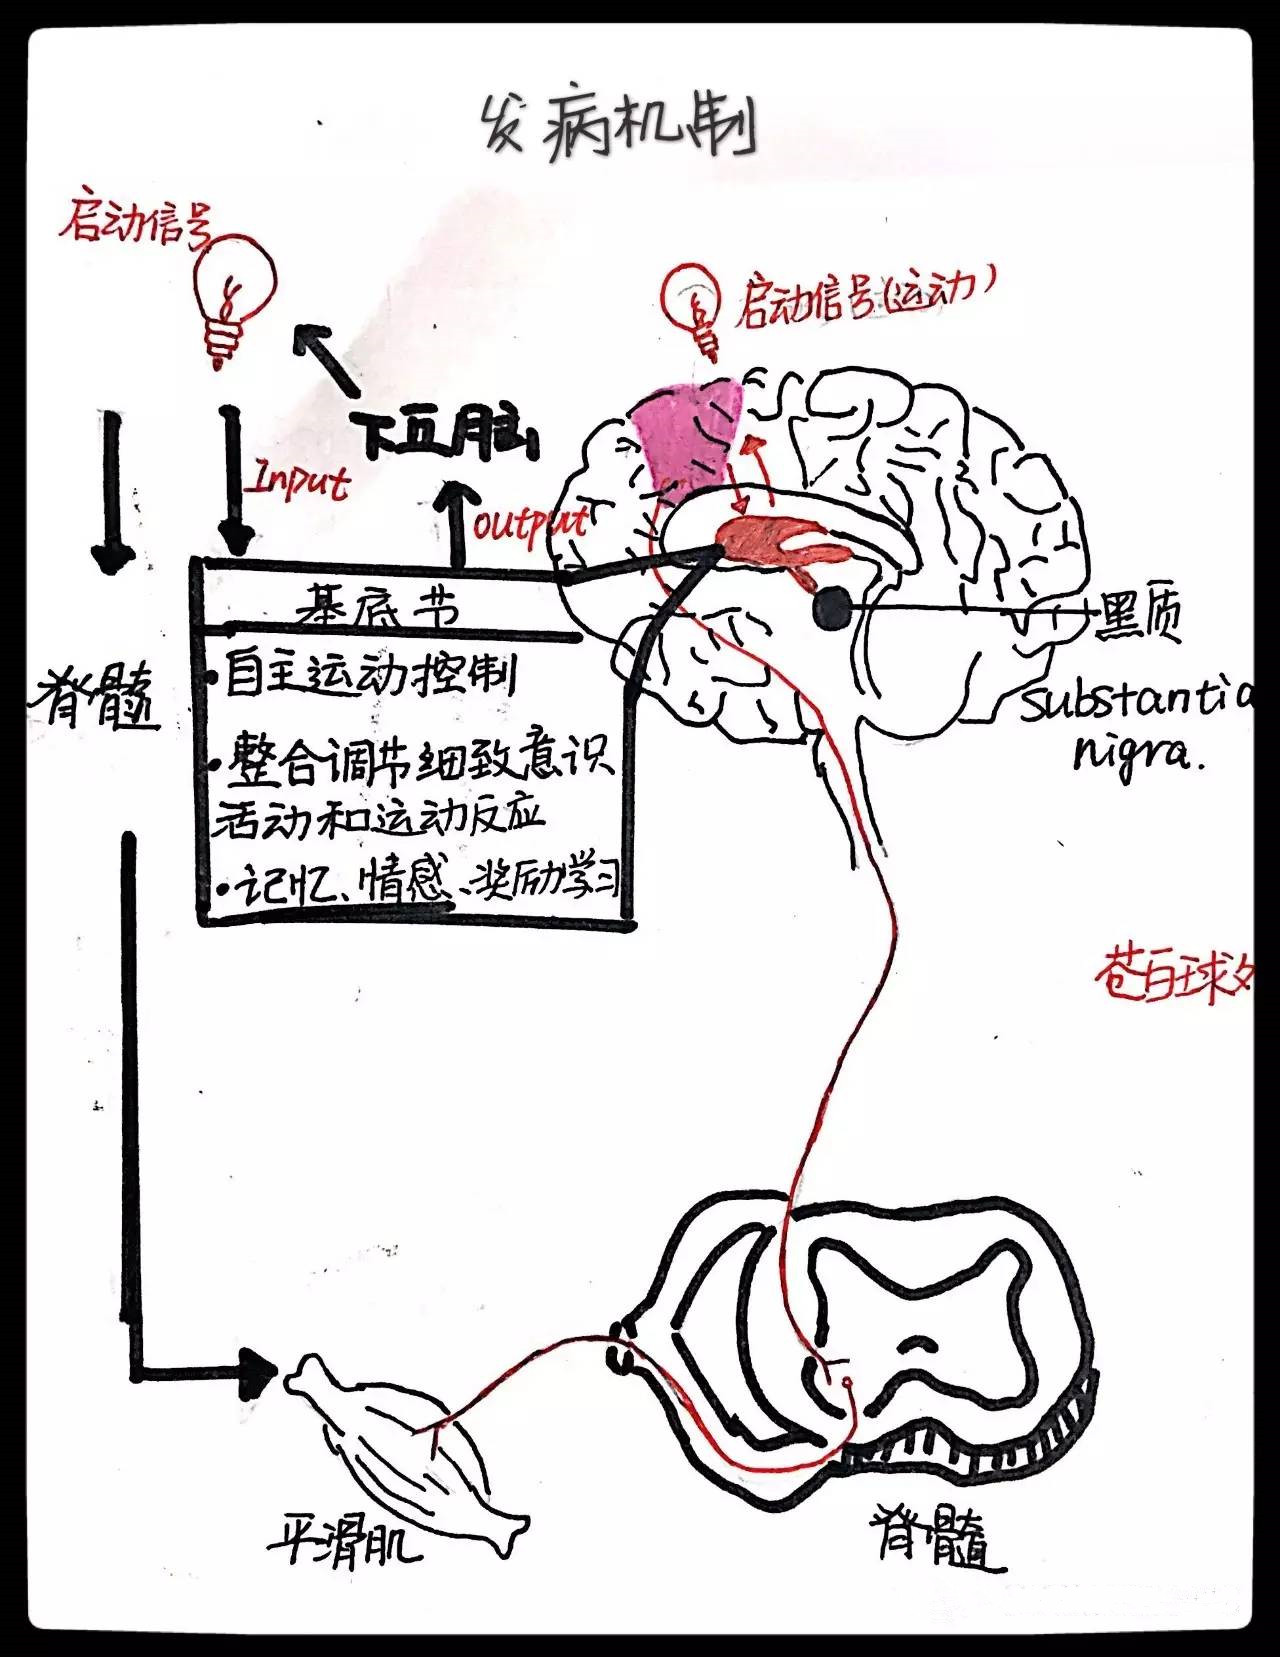 发病机制
启动信号
启动信号(运动)
下丘脑
Input
output
基底节
·自主运动控制
·整合调节细致意识
活动和运动反应
·记忆、情感、奖励学习
脊髓
黑质
substantia
nigra.
苍白球
平滑肌
脊髓